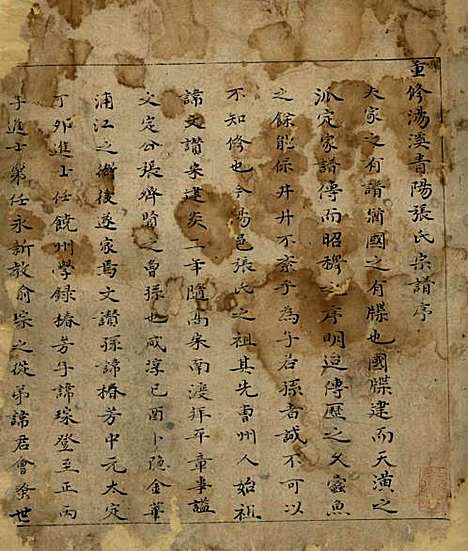 重修湯溪青陽張氏宗譜序
夫家之有譜猶國之有牒也國牒建而天潢之
派定家譜傳而昭穆之序明迨傳歷之久蠹魚
之餘能保井井不紊乎為子若孫者誠不可以
不知修也今湯邑張氏之祖其先曹州人始祖
諱文讚宋建炎二年隨高宗南渡拜平章事謚
文定公張齊賢之曾孫也咸淳己酉卜隱金華
浦江之衢後遂家焉文讚孫諱椿芳中元太定
丁卯進士任饒州學錄椿芳子諱琮登至正丙
子進士第任永新教俞琮之從弟諱君會發世